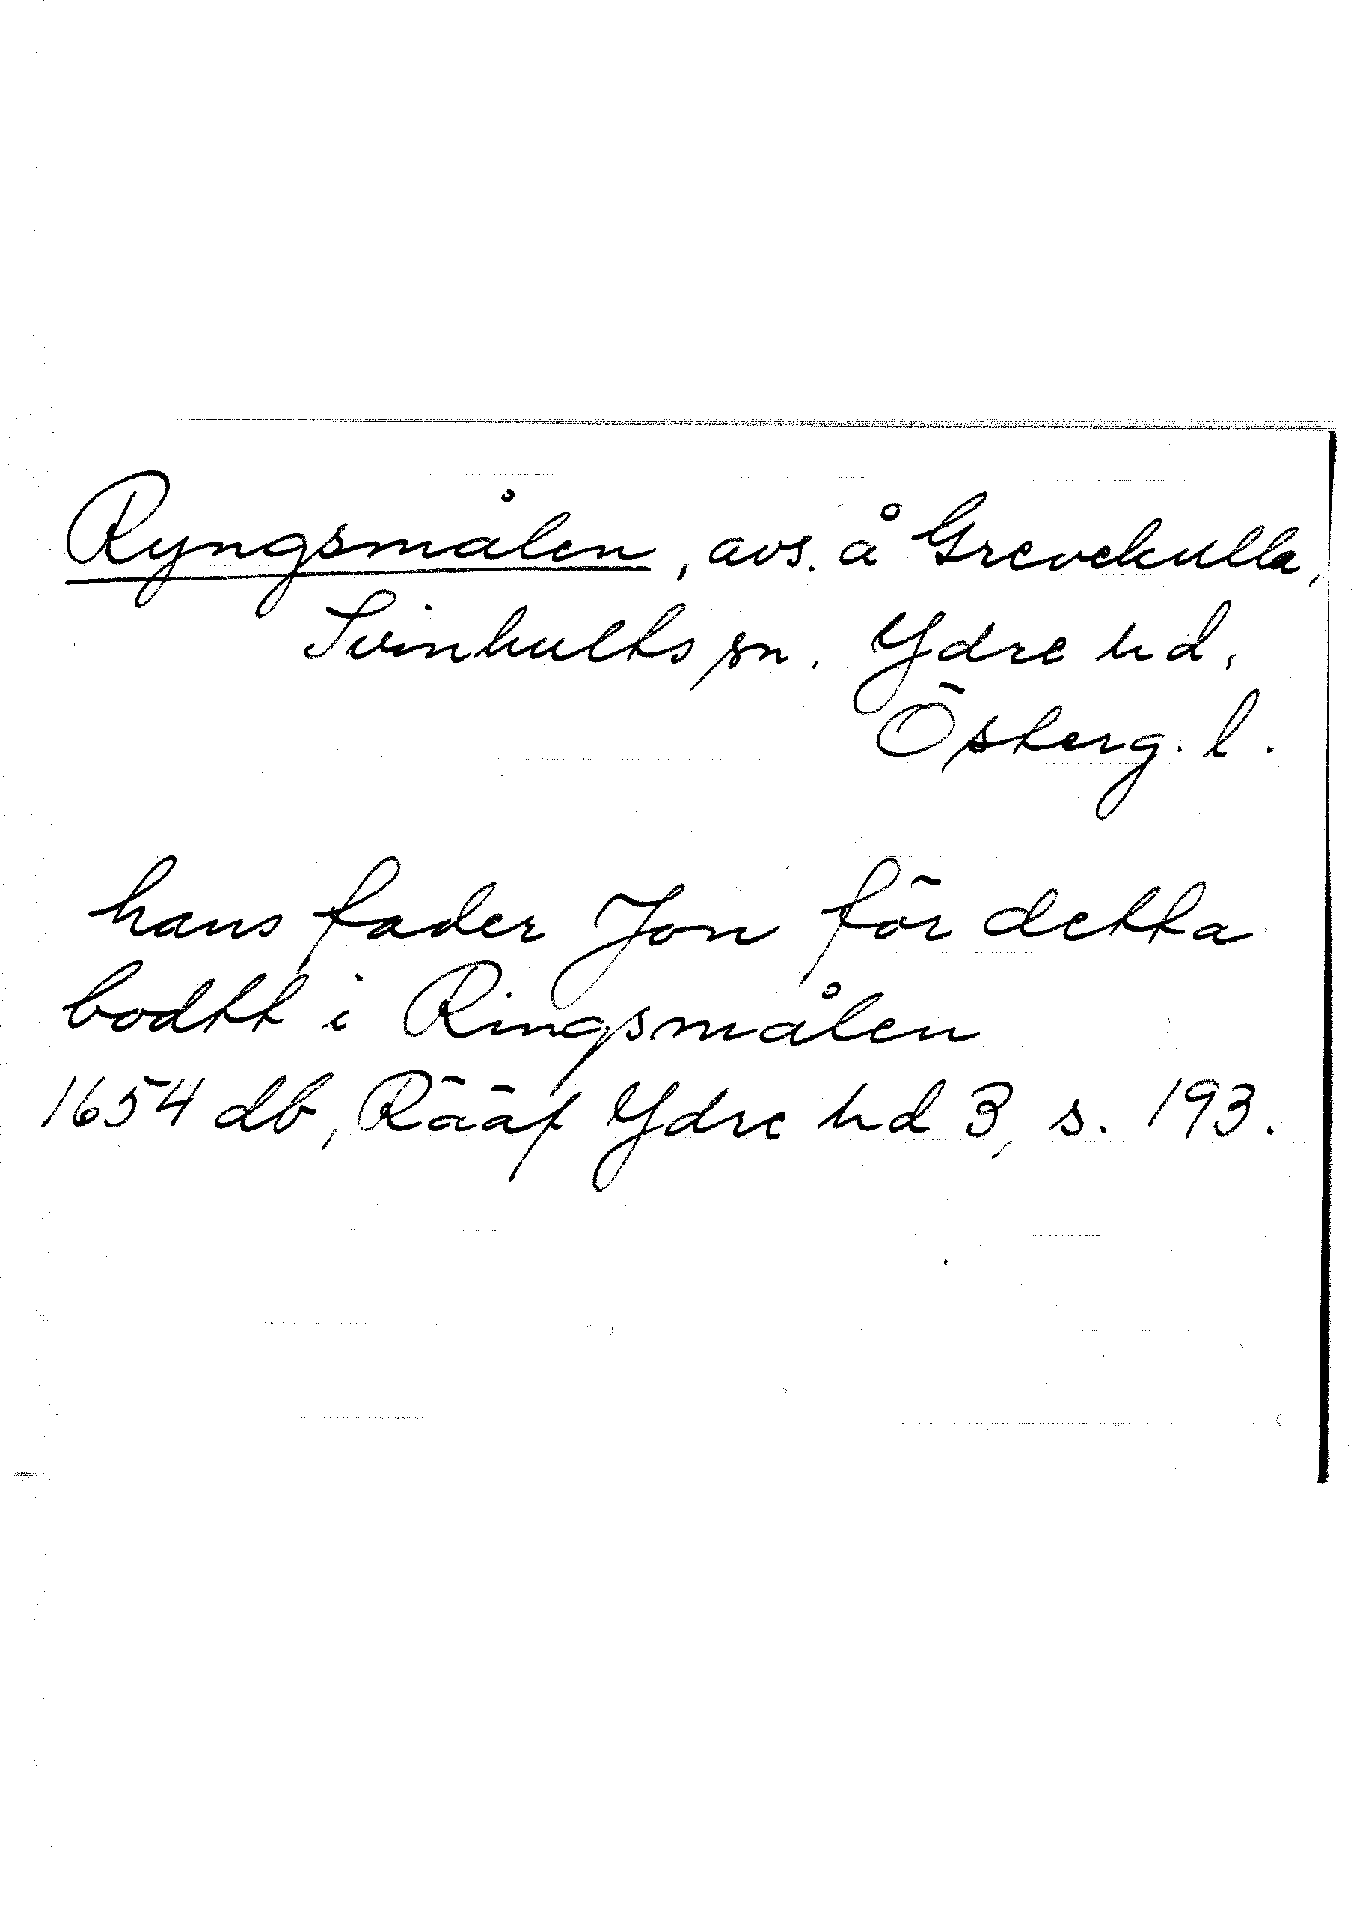 Ryngsmålen, avs. å Grevekulla,
Svinhults sn. Ydre hd,
Österg. l.
hans fader Jon för detta
bodtt i Ringsmålen
1654 db, Rääf Ydre hd 3, s. 193.